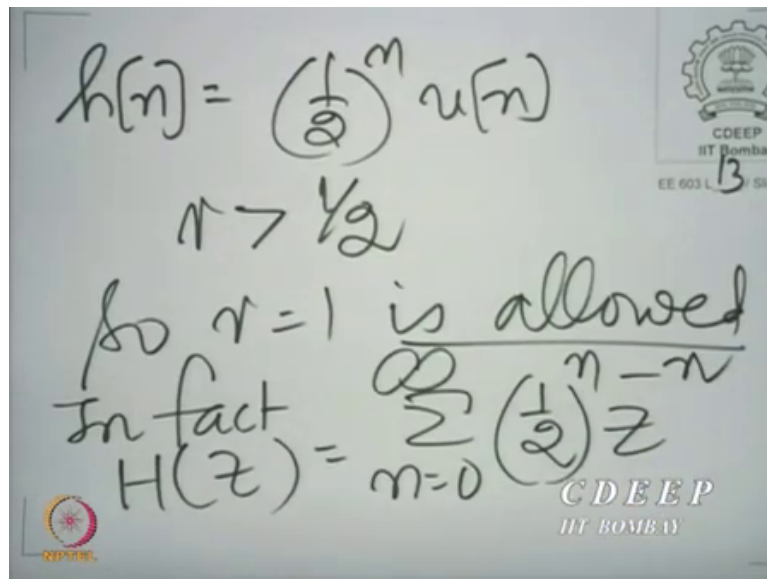 h[n] = (1/2)^n u[n]
r > 1/2
So r = 1 is allowed
In fact
H(Z) = ∞ Σ n=0 (1/2)^n Z^-n
CDEEP
IIT Bomba
EE 603 L 13 / Sl
CDEEP
IIT BOMBAY
NPTEL